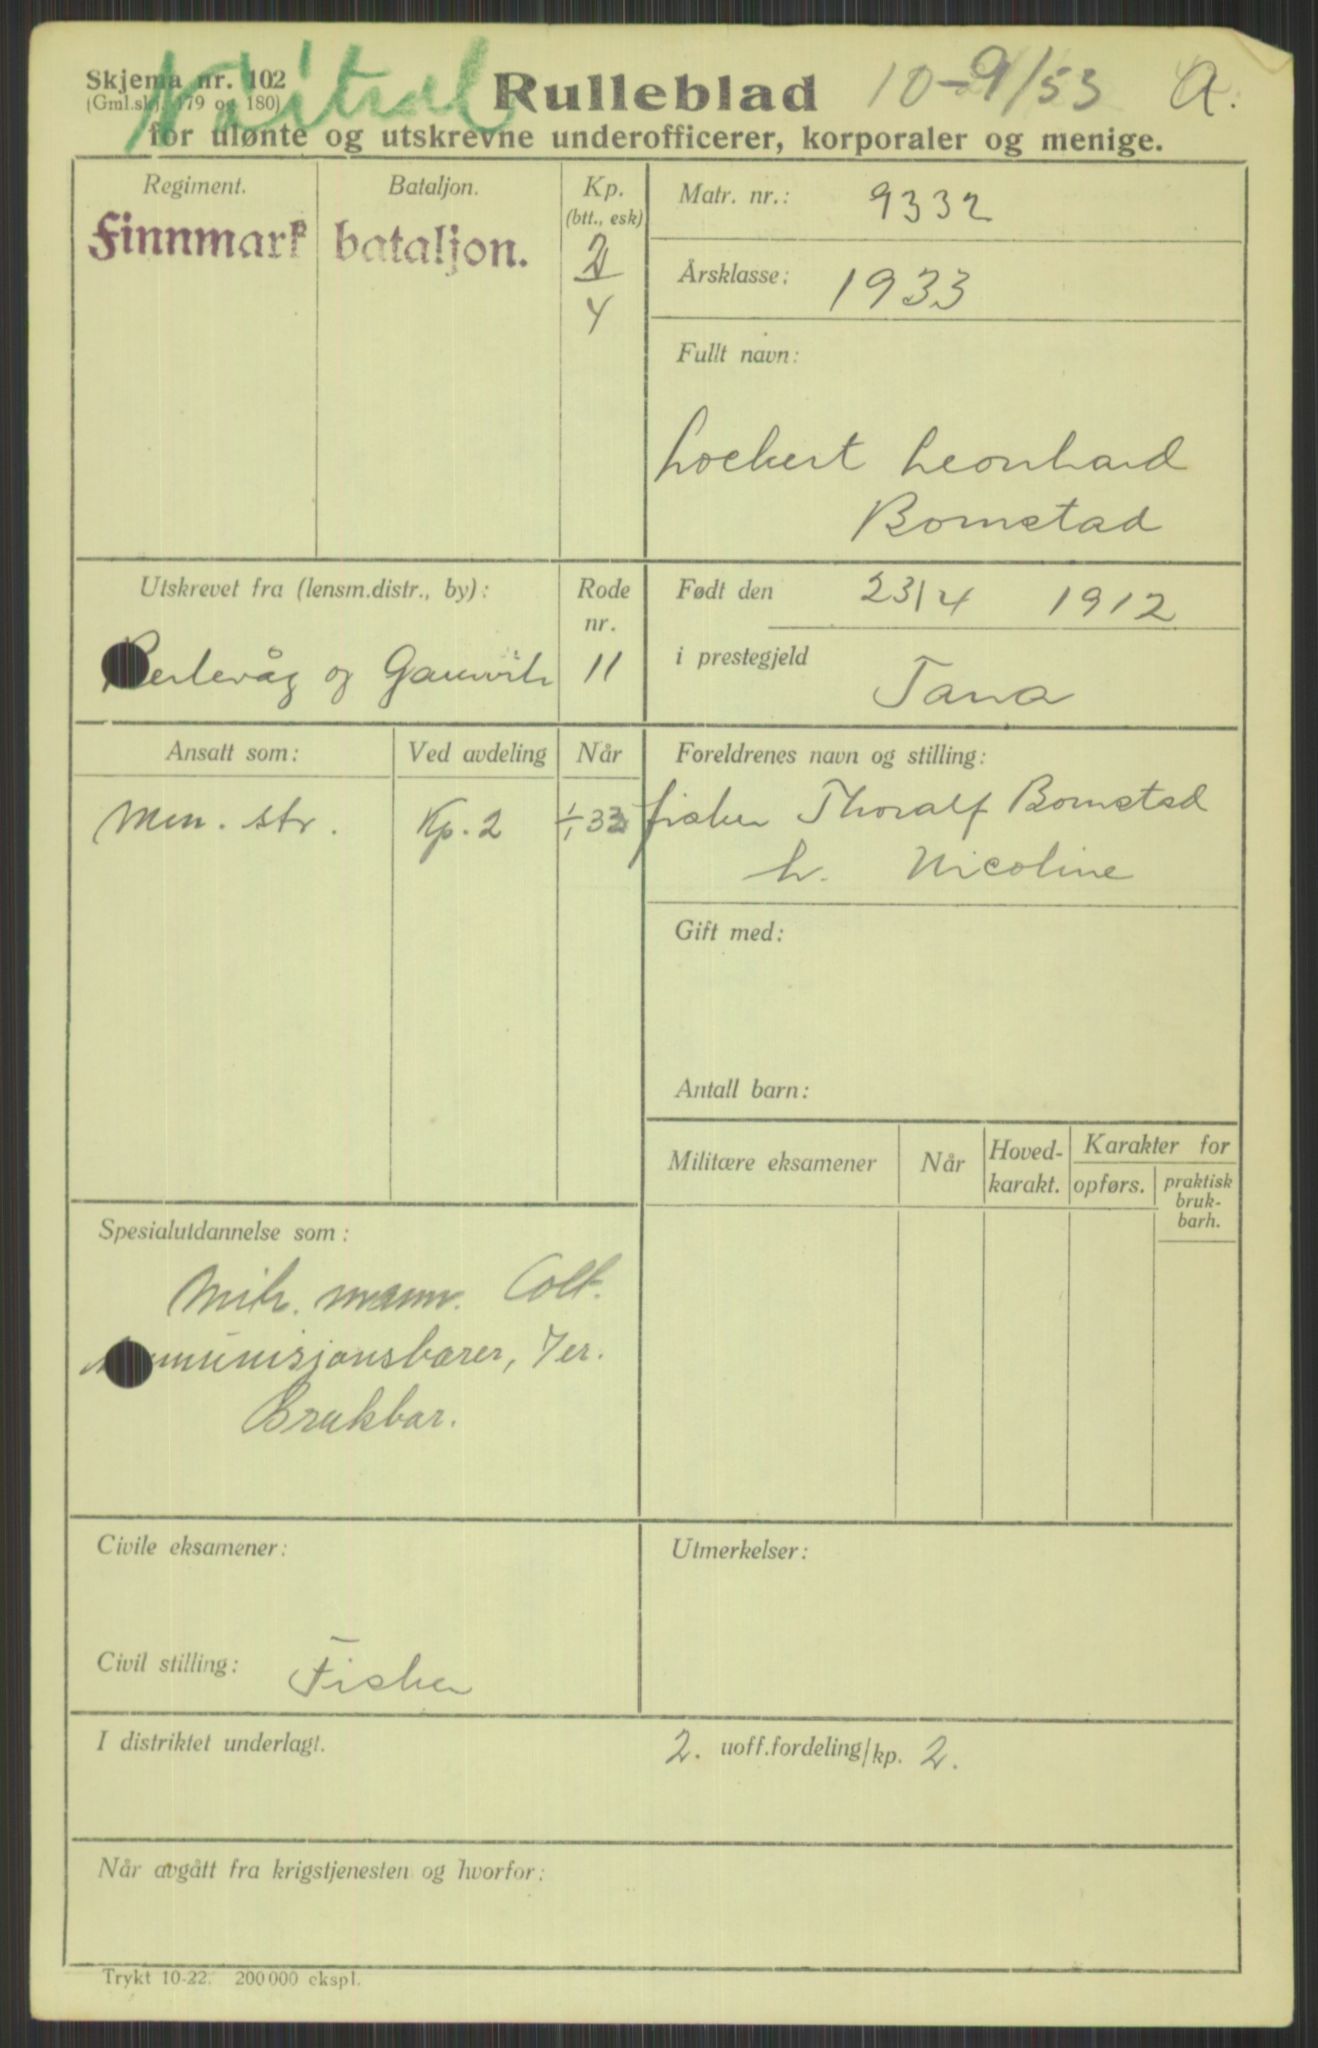 Skjema nr. 102
(Gml.skj. 179 og 180)
Nøitral
Rulleblad
10-9/53
A.
for ulønte og utskrevne underofficerer, korporaler og menige.
Regiment.
Bataljon.
Kp.
(btt., esk)
Finnmark bataljon.
2
4
Matr. nr.: 9332
Årsklasse: 1933
Fullt navn:
Lockert Leonhard
Bomstad
Utskrevet fra (lensm.distr., by):
Rode
nr.
Berlevåg og Gamvik
11
Født den 23/4 1912
i prestegjeld Tana
Ansatt som:
Ved avdeling
Når
Men. str.
Kp. 2
1/1 33
Foreldrenes navn og stilling:
fisker Thoralf Bomstad
h. Nicoline
Gift med:
Antall barn:
Militære eksamener
Når
Hoved-
karakt.
Karakter for
opførs.
praktisk
bruk-
barh.
Spesialutdannelse som:
Mitr. mann. Colt.
Ammunisjonsbærer, 7er.
Brukbar.
Civile eksamener:
Utmerkelser:
Civil stilling: Fisker
I distriktet underlagt.
2. uoff.fordeling/kp. 2.
Når avgått fra krigstjenesten og hvorfor:
Trykt 10-22. 200 000 ekspl.